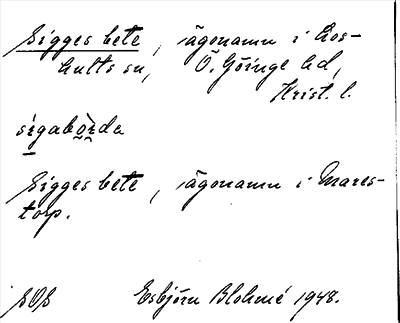 Sigges bete, ägonamn i Los-
hults sn, Ö. Göinge hd,
Krist. l.
Sigges bete, ägonamn i Mares-
torp.
SOS Esbjörn Blohmé 1948.